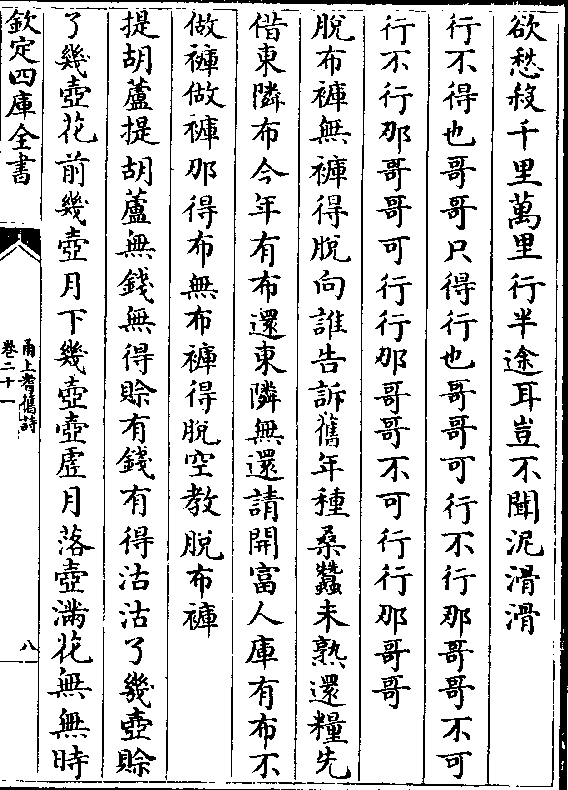 欲愁殺千里萬里行半途耳豈不聞泥滑滑
行不得也哥哥只得行也哥哥可行不行那哥哥不可
行不行那哥哥可行行那哥哥不可行行那哥哥
脫布褲無褲得脫向誰告訴舊年種桑蠶未熟還糧先
借東隣布今年有布還東隣無還請開富人庫有布不
做褲做褲那得布無布褲得脫空教脫布褲
提胡蘆提胡蘆無錢無得賖有錢有得沽沽了幾壺賖
了幾壺花前幾壺月下幾壺壺虛月落壺滿花無無時
欽定四庫全書
甬上耆舊詩
卷二十一
八